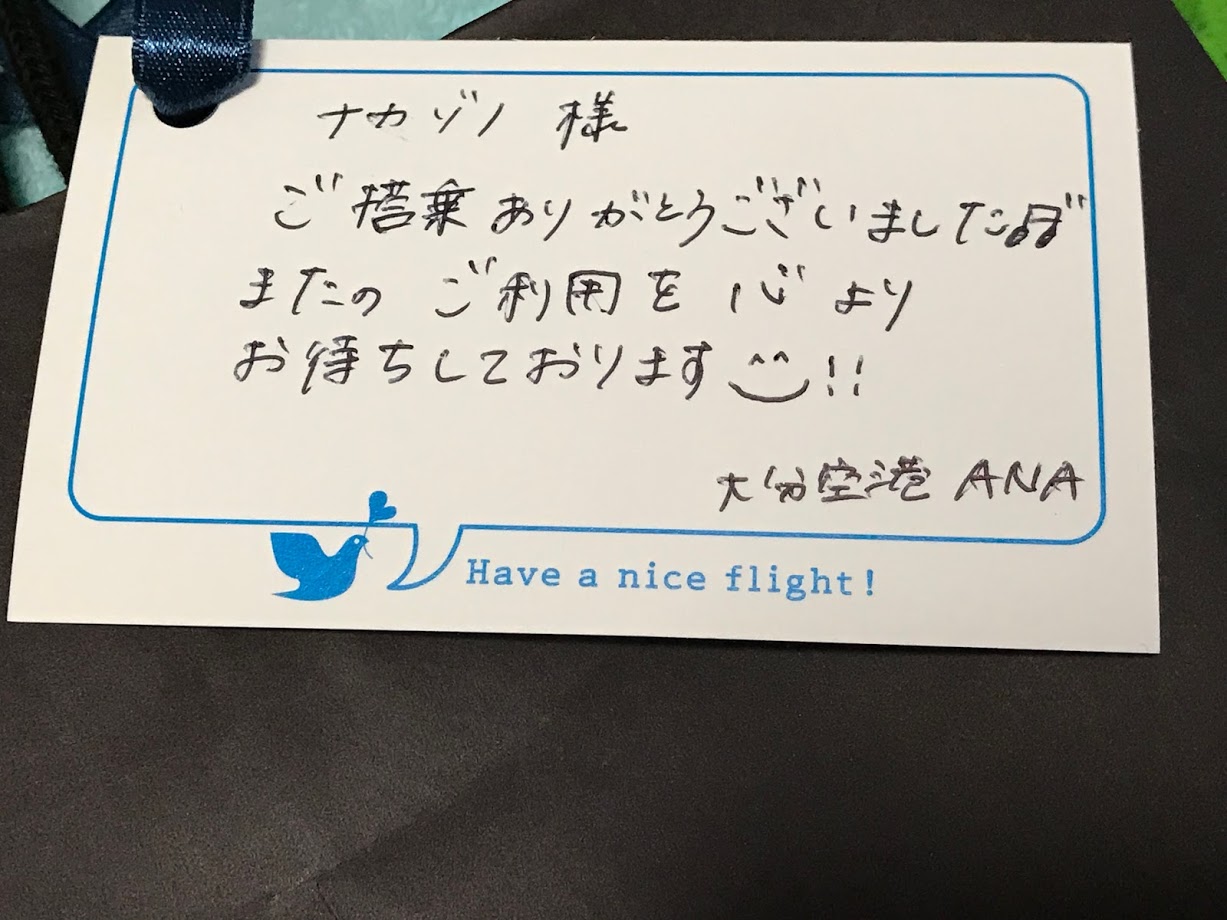 ナカゾノ 様
ご搭乗ありがとうございました♫
またの ご利用を 心より
お待ちしております^^!!
大分空港 ANA
Have a nice flight!